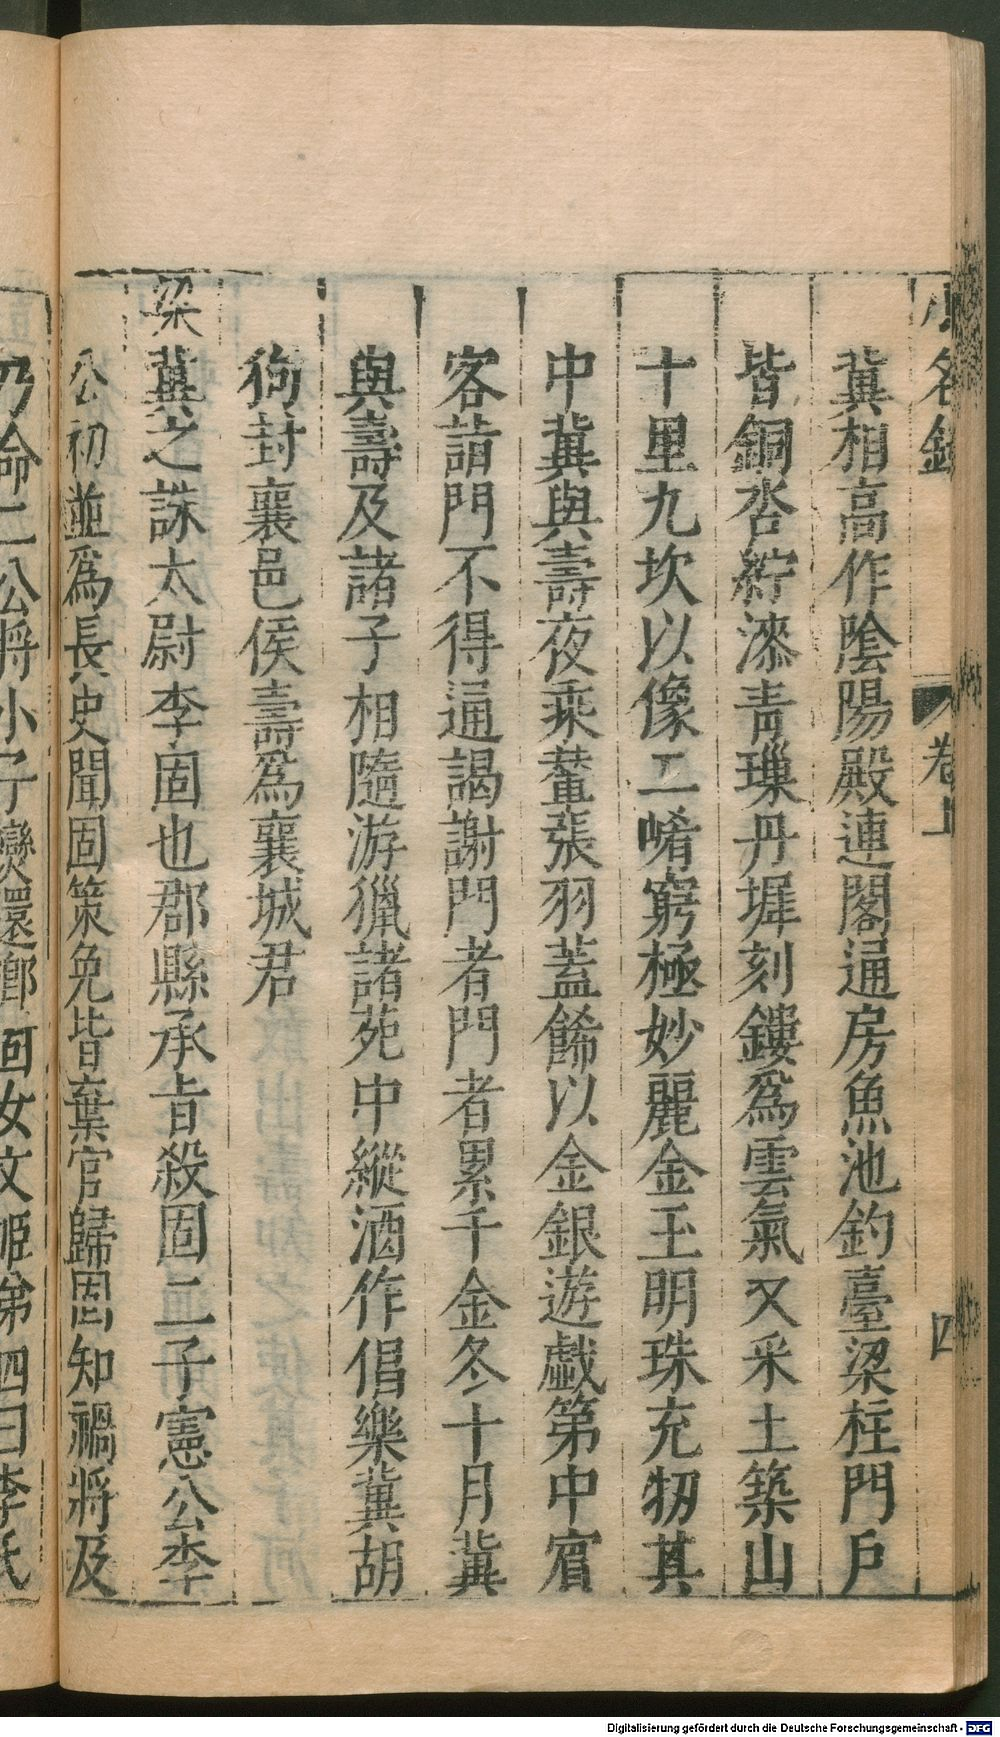 小名錄 卷上 四
冀相高作陰陽殿連閣通房魚池釣臺梁柱門戶
皆銅沓紵漆青璅丹墀刻鏤爲雲氣又采土築山
十里九坎以像二崤窮極妙麗金玉明珠充牣其
中冀與壽夜乘輦張羽蓋餙以金銀遊戲第中賔
客詣門不得通謁謝門者門者累千金冬十月冀
與壽及諸子相隨游獵諸苑中縱酒作倡樂冀胡
狗封襄邑侯壽爲襄城君
梁冀之誅太尉李固也郡縣承旨殺固二子憲公李
公初並爲長史聞固策免皆棄官歸固知禍將及
乃命二公將小子爕還鄉固女文姬第四曰李氏
Digitalisierung gefördert durch die Deutsche Forschungsgemeinschaft - DFG